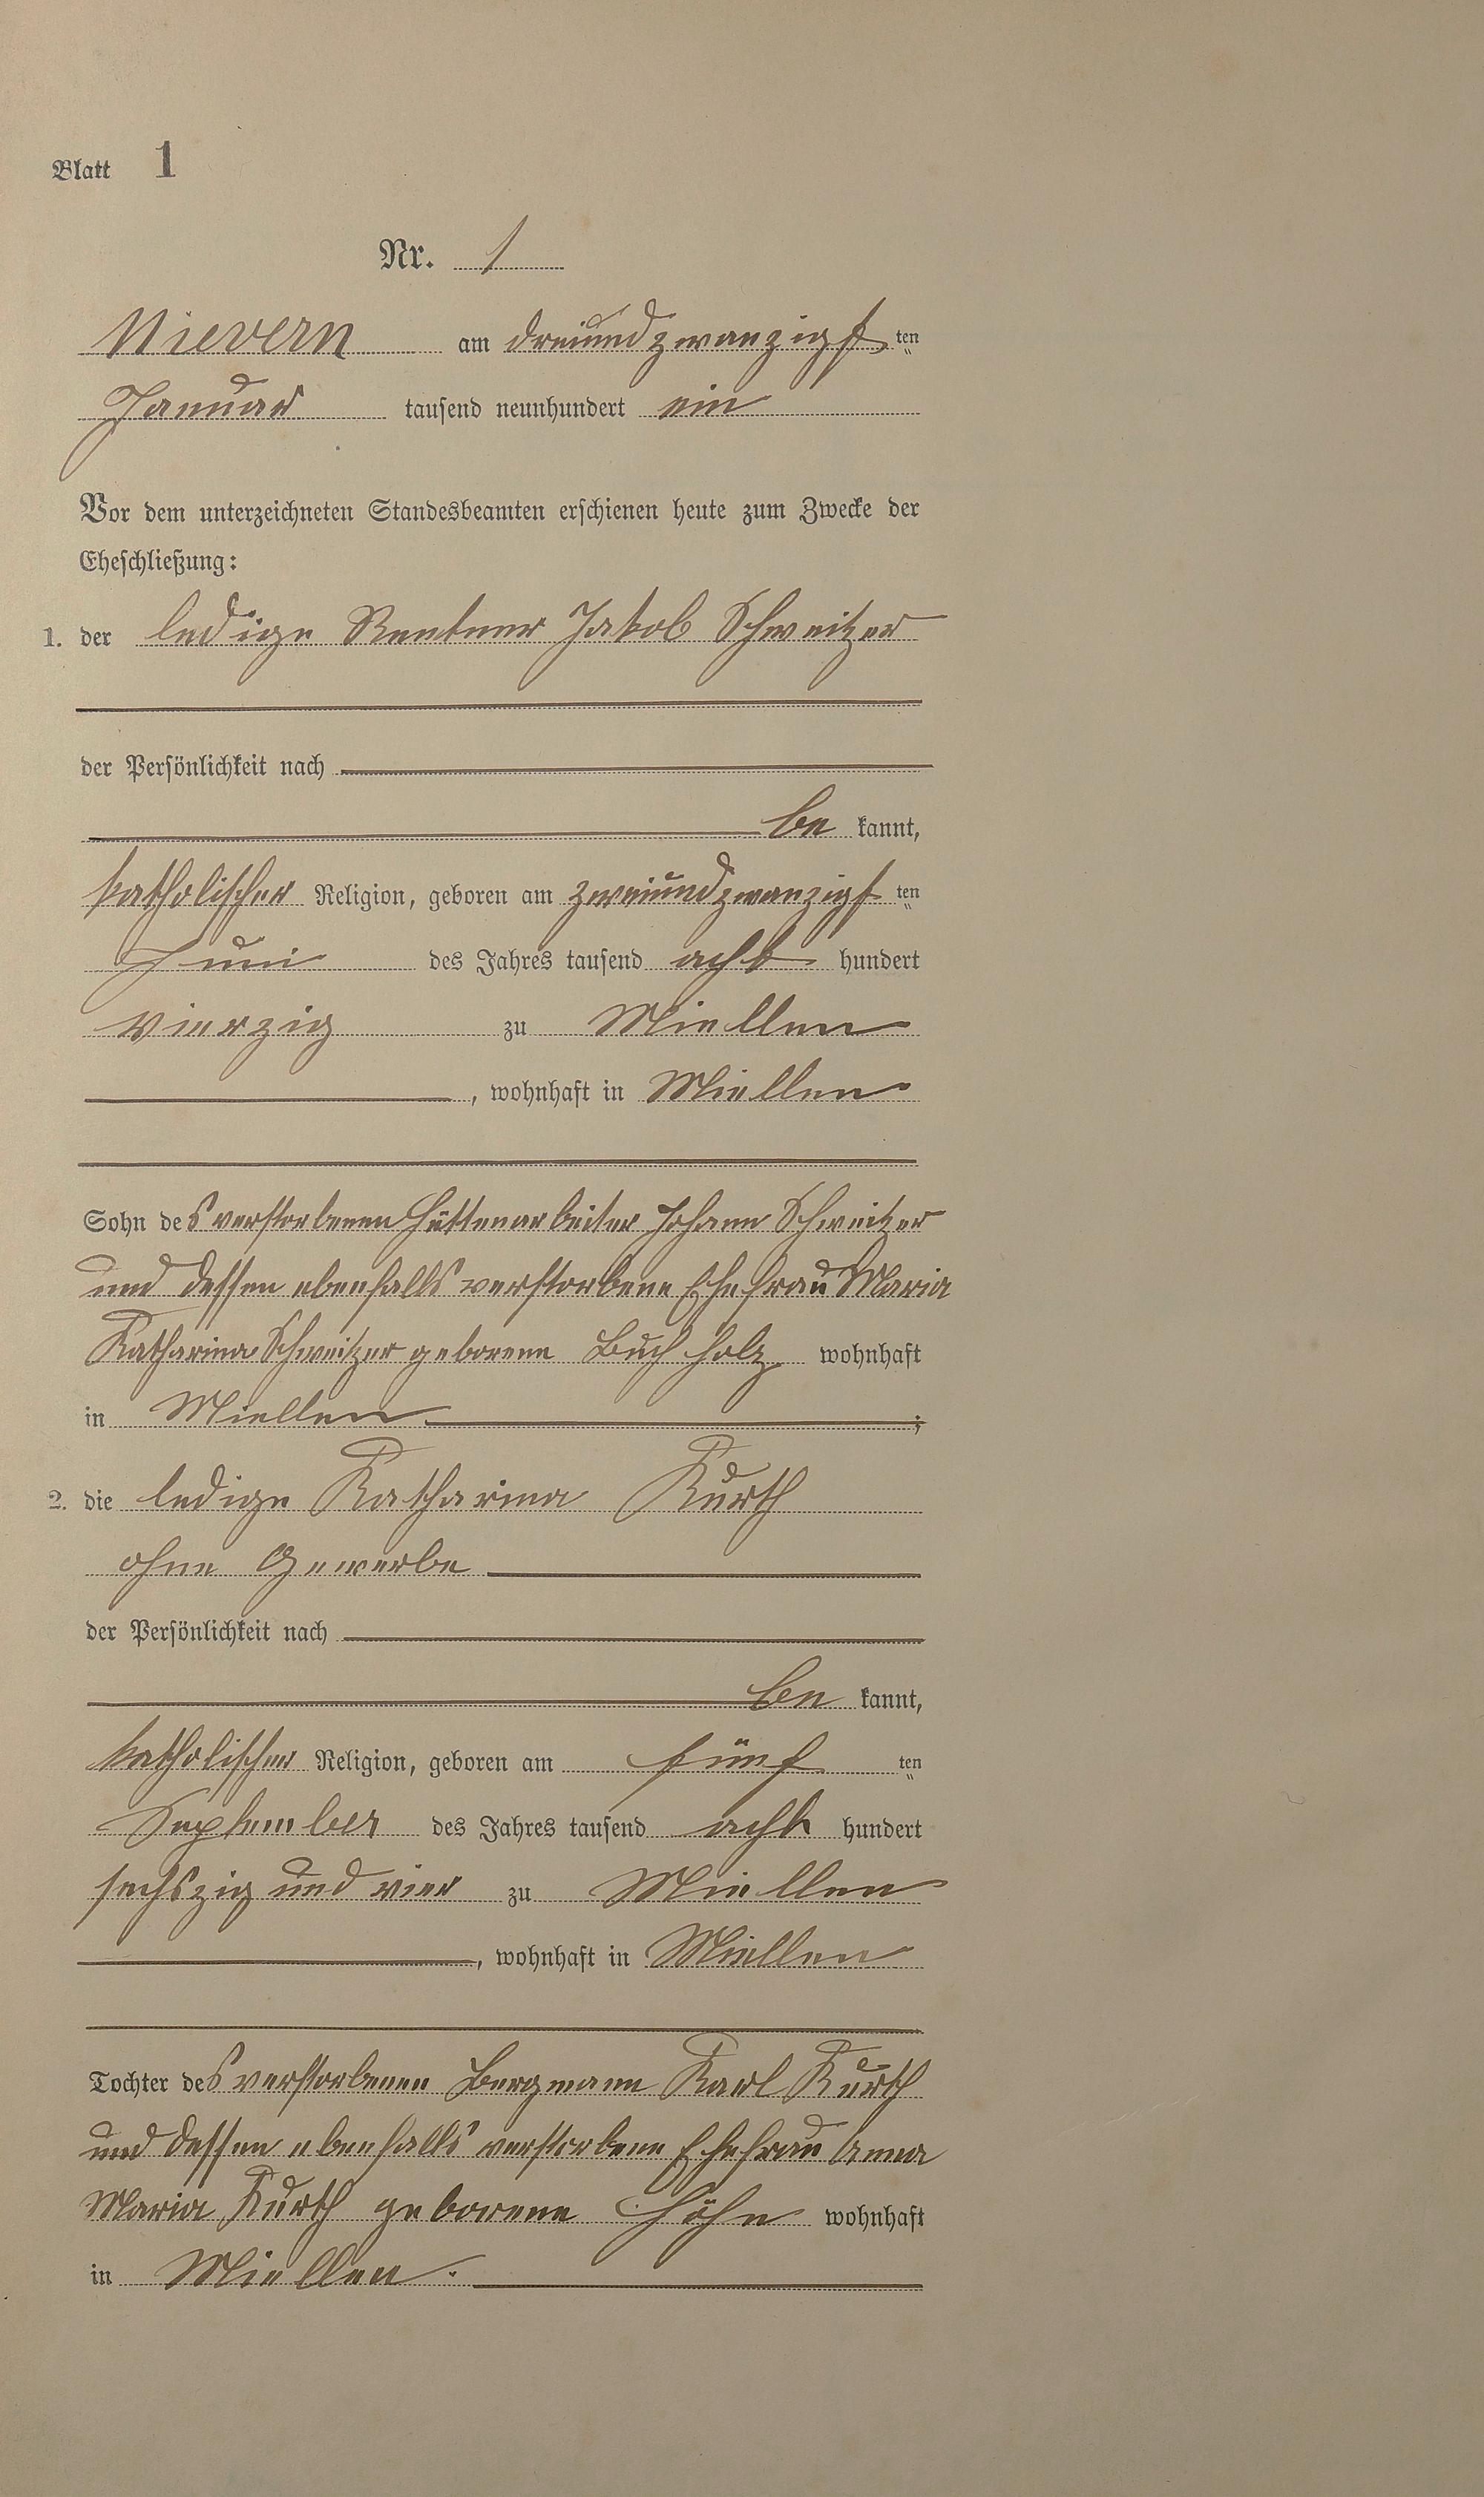 Blatt 1
Nr. 1
Nievern am dreiundzwanzigsten
Januar tausend neunhundert ein
Vor dem unterzeichneten Standesbeamten erschienen heute zum Zwecke der
Eheschließung:
1. der ledige Rentner Jakob Schweitzer
der Persönlichkeit nach
be kannt,
katholischer Religion, geboren am zweiundzwanzigsten
Juni des Jahres tausend acht hundert
vierzig zu Miellen
, wohnhaft in Miellen
Sohn des verstorbenen Hüttenarbeiter Johann Schweitzer
und dessen ebenfalls verstorbene Ehefrau Maria
Katharina Schweitzer geborene Buchholz wohnhaft
in Miellen ;
2. die ledige Katharina Kurth
ohne Gewerbe
der Persönlichkeit nach
be kannt,
katholischer Religion, geboren am fünf ten
September des Jahres tausend acht hundert
sechszig und vier zu Miellen
, wohnhaft in Miellen
Tochter des verstorbenen Bergmann Karl Kurth
und dessen ebenfalls verstorbene Ehefrau Anna
Maria Kurth geborene Höhn wohnhaft
in Miellen.